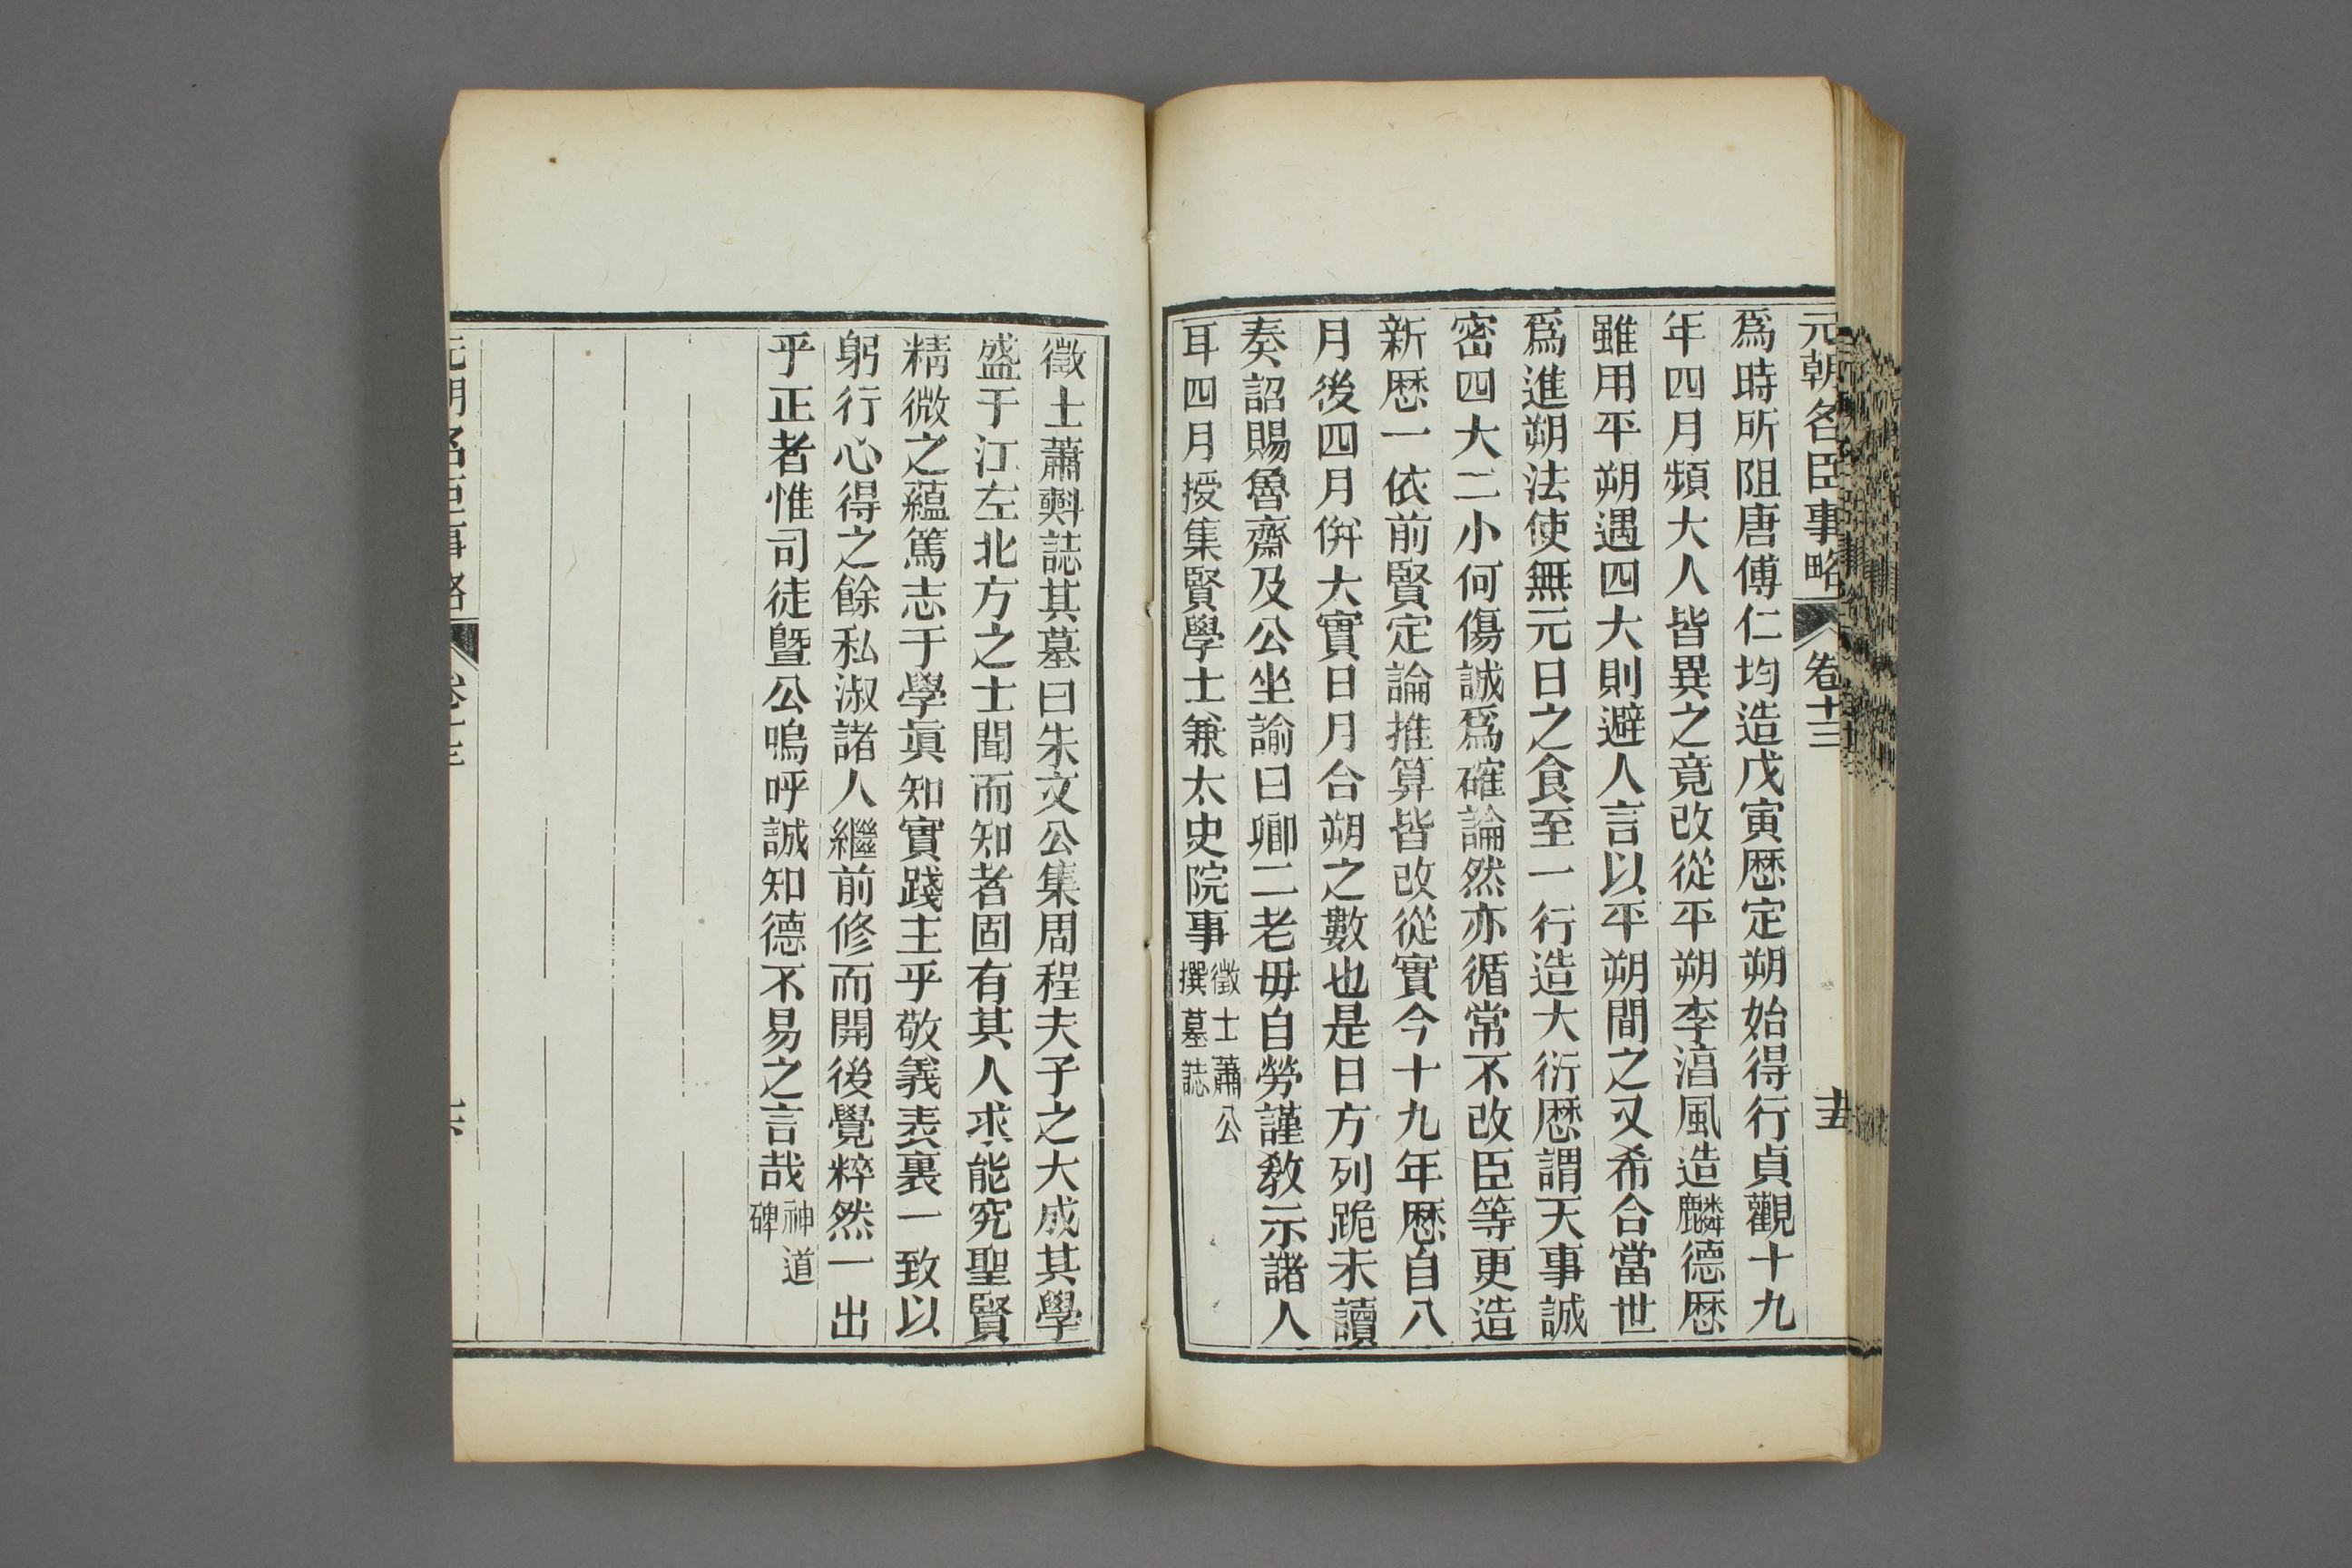 元朝名臣事略 卷十三 十五
爲時所阻唐傅仁均造戊寅歴定朔始得行貞觀十九
年四月頻大人皆異之竟改從平朔李淳風造麟德歴
雖用平朔遇四大則避人言以平朔間之又希合當世
爲進朔法使無元日之食至一行造大衍歴謂天事誠
密四大二小何傷誠爲確論然亦循常不改臣等更造
新歴一依前賢定論推算皆改從實今十九年歴自八
月後四月倂大實日月合朔之數也是日方列跪未讀
奏詔賜魯齋及公坐諭曰卿二老毋自勞謹敎示諸人
耳四月授集賢學士兼太史院事
徵士蕭公
撰墓誌
徵士蕭㪺誌其墓曰朱文公集周程夫子之大成其學
盛于江左北方之士聞而知者固有其人求能究聖賢
精微之蘊篤志于學眞知實踐主乎敬義表裏一致以
躬行心得之餘私淑諸人繼前修而開後覺粹然一出
乎正者惟司徒曁公嗚呼誠知德不易之言哉
神道
碑
元朝名臣事略 卷十三